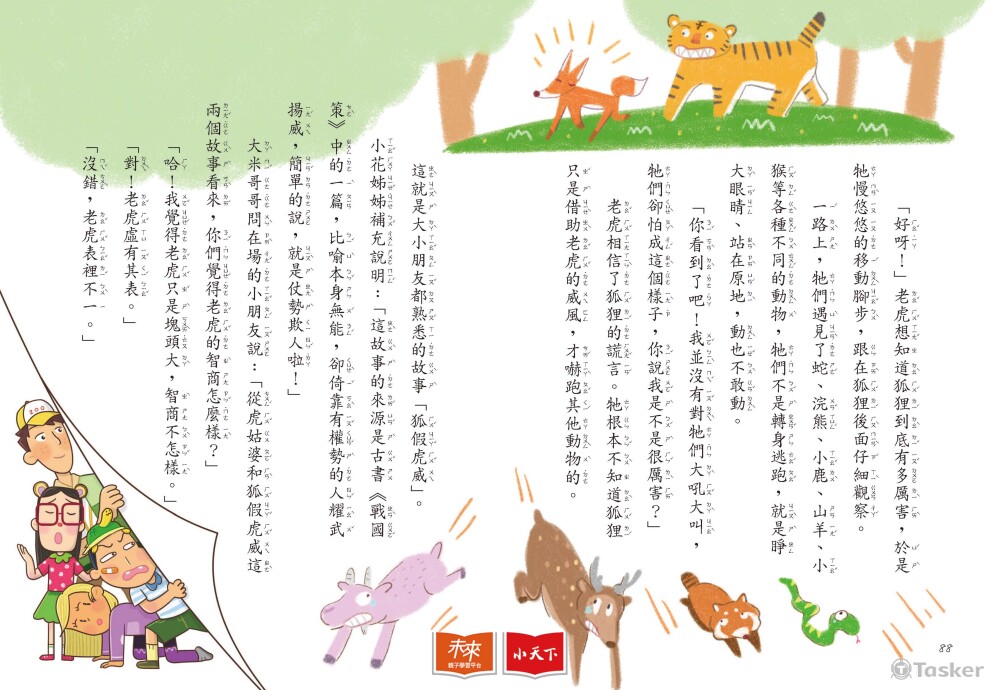 「好呀！」老虎想知道狐狸到底有多厲害，於是
牠慢悠悠的移動腳步，跟在狐狸後面仔細觀察。
一路上，牠們遇見了蛇、浣熊、小鹿、山羊、小
猴等各種不同的動物，牠們不是轉身逃跑，就是睜
大眼睛、站在原地，動也不敢動。
「你看到了吧！我並沒有對牠們大吼大叫，
牠們卻怕成這個樣子，你說我是不是很厲害？」
老虎相信了狐狸的謊言。牠根本不知道狐狸
只是借助老虎的威風，才嚇跑其他動物的。
這就是大小朋友都熟悉的故事「狐假虎威」。
小花姊姊補充說明：「這故事的來源是古書《戰國
策》中的一篇，比喻本身無能，卻倚靠有權勢的人耀武
揚威，簡單的說，就是仗勢欺人啦！」
大米哥哥問在場的小朋友說：「從虎姑婆和狐假虎威這
兩個故事看來，你們覺得老虎的智商怎麼樣？」
「哈！我覺得老虎只是塊頭大，智商不怎樣。」
「對！老虎虛有其表。」
「沒錯，老虎表裡不一。」
200
未來
親子學習平台
小天下
88
Tasker